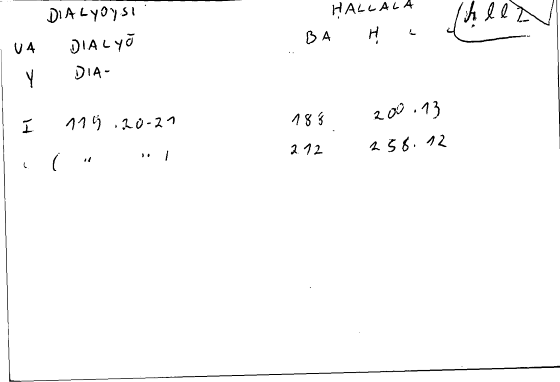 DIALYOYSI ḤALLALA ḥll2
VA DIALYŌ BA Ḥ L L
Y DIA-
I 119.20-21 188 200.13
L ( " " ) 212 258.12